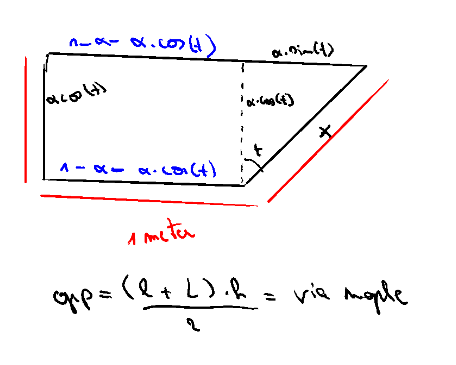 1 - α - α.cos(t)
α.sin(t)
α cos(t)
α.cos(t)
x
t
1 - α - α.cos(t)
1 meter
opp = (l + L).h / 2 = via maple